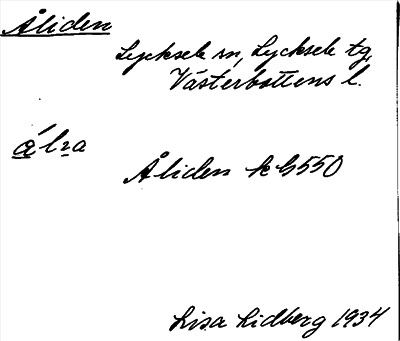 Åliden
Lycksele sn, Lycksele tg,
Västerbottens l.
Åliden k h 550
Lisa Lidberg 1934